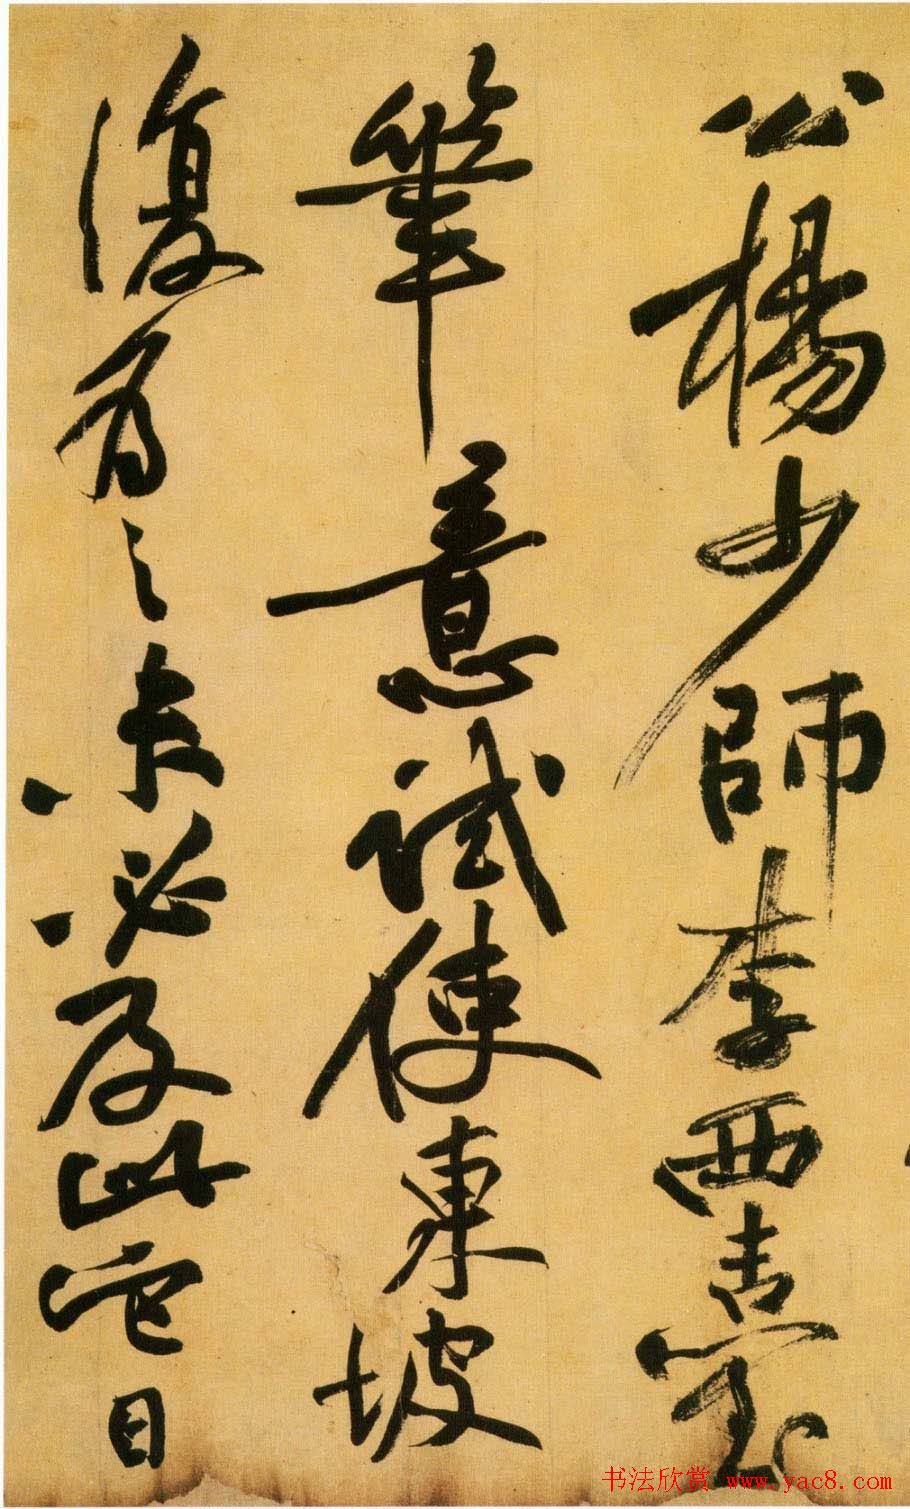 公楊少師李西臺
筆意試使東坡
復為之未必及此它日
书法欣赏 www.yac8.com